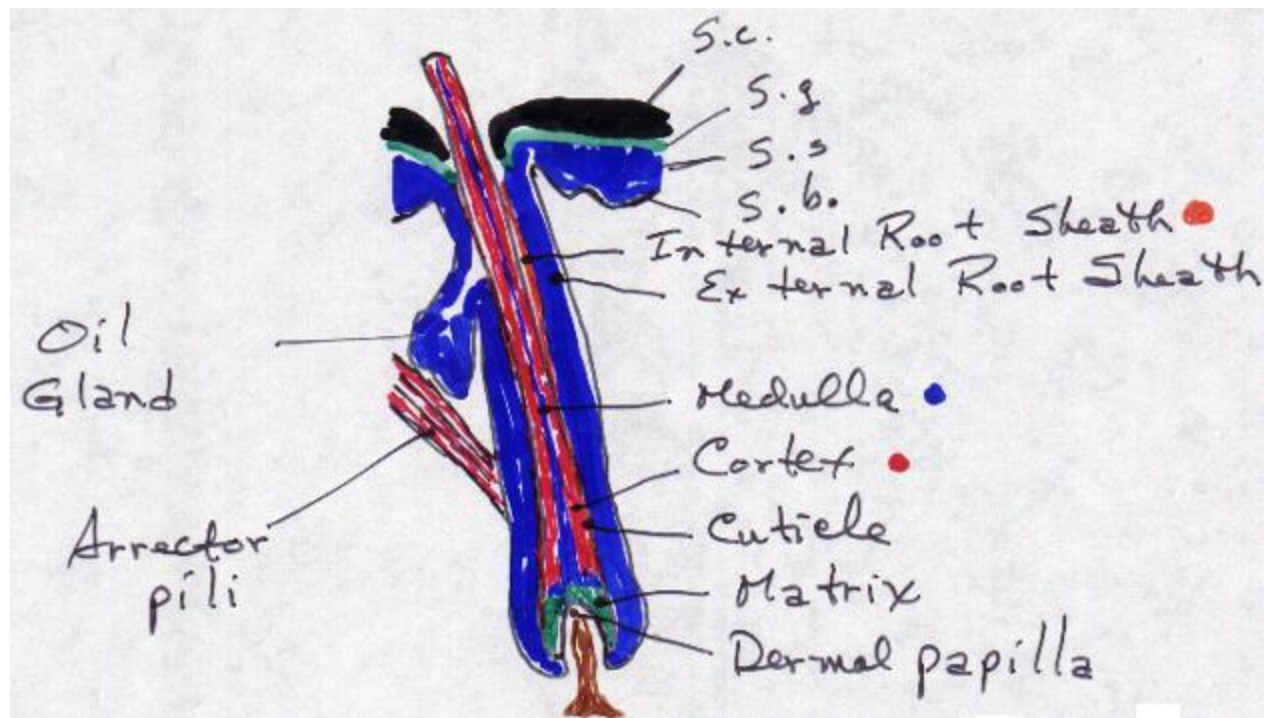 S.c.
S.g
S.s
S.b.
Internal Root Sheath
External Root Sheath
Oil
Gland
Medulla
Cortex
Arrector
pili
Cuticle
Matrix
Dermal papilla